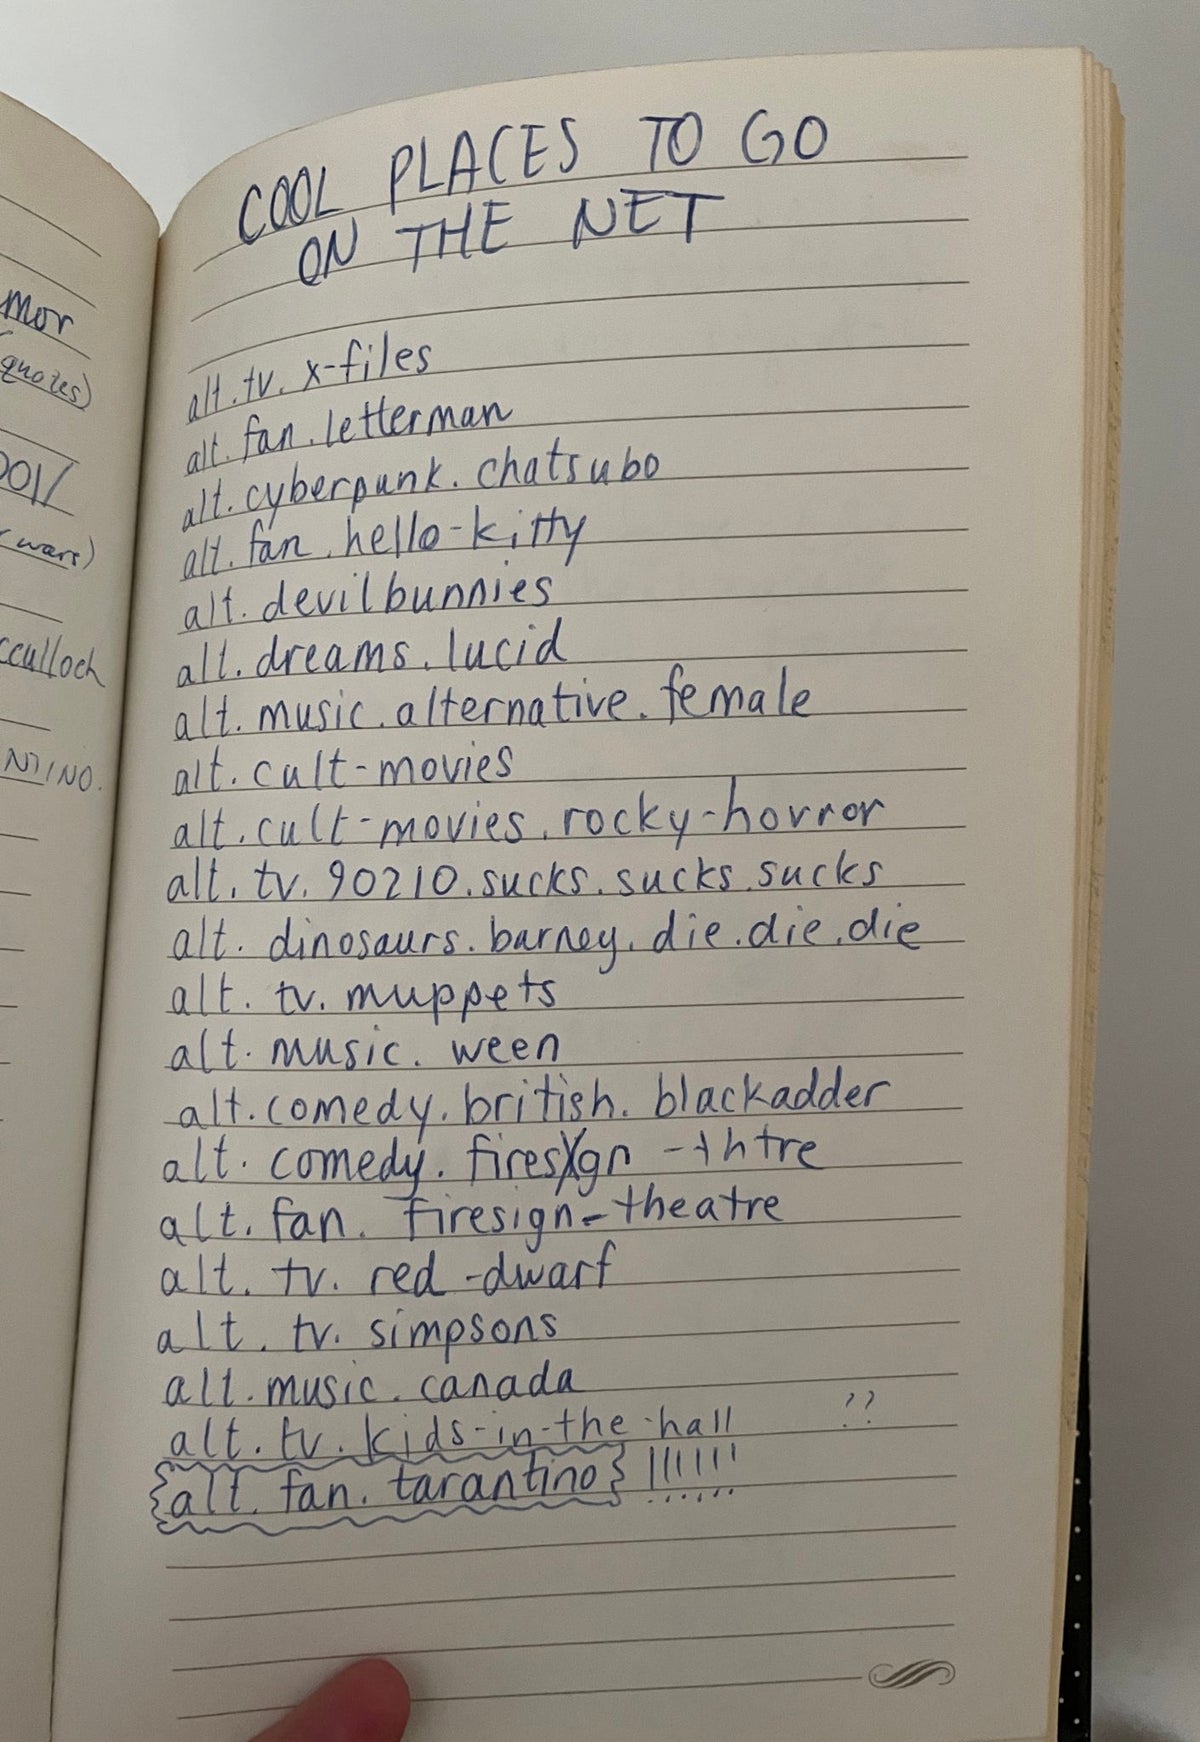 mor
quotes)
001/
wars)
cculloch
NTINO.
COOL PLACES TO GO
ON THE NET
alt.tv.x-files
alt.fan.letterman
alt.cyberpunk.chatsubo
alt.fan.hello-kitty
alt.devilbunnies
alt.dreams.lucid
alt.music.alternative.female
alt.cult-movies
alt.cult-movies.rocky-horror
alt.tv.90210.sucks.sucks.sucks
alt.dinosaurs.barney.die.die.die
alt.tv.muppets
alt.music.ween
alt.comedy.british.blackadder
alt.comedy.firesgn-thtre
alt.fan.firesign-theatre
alt.tv.red-dwarf
alt.tv.simpsons
alt.music.canada
alt.tv.kids-in-the-hall ??
{alt.fan.tarantino} !!!!!!